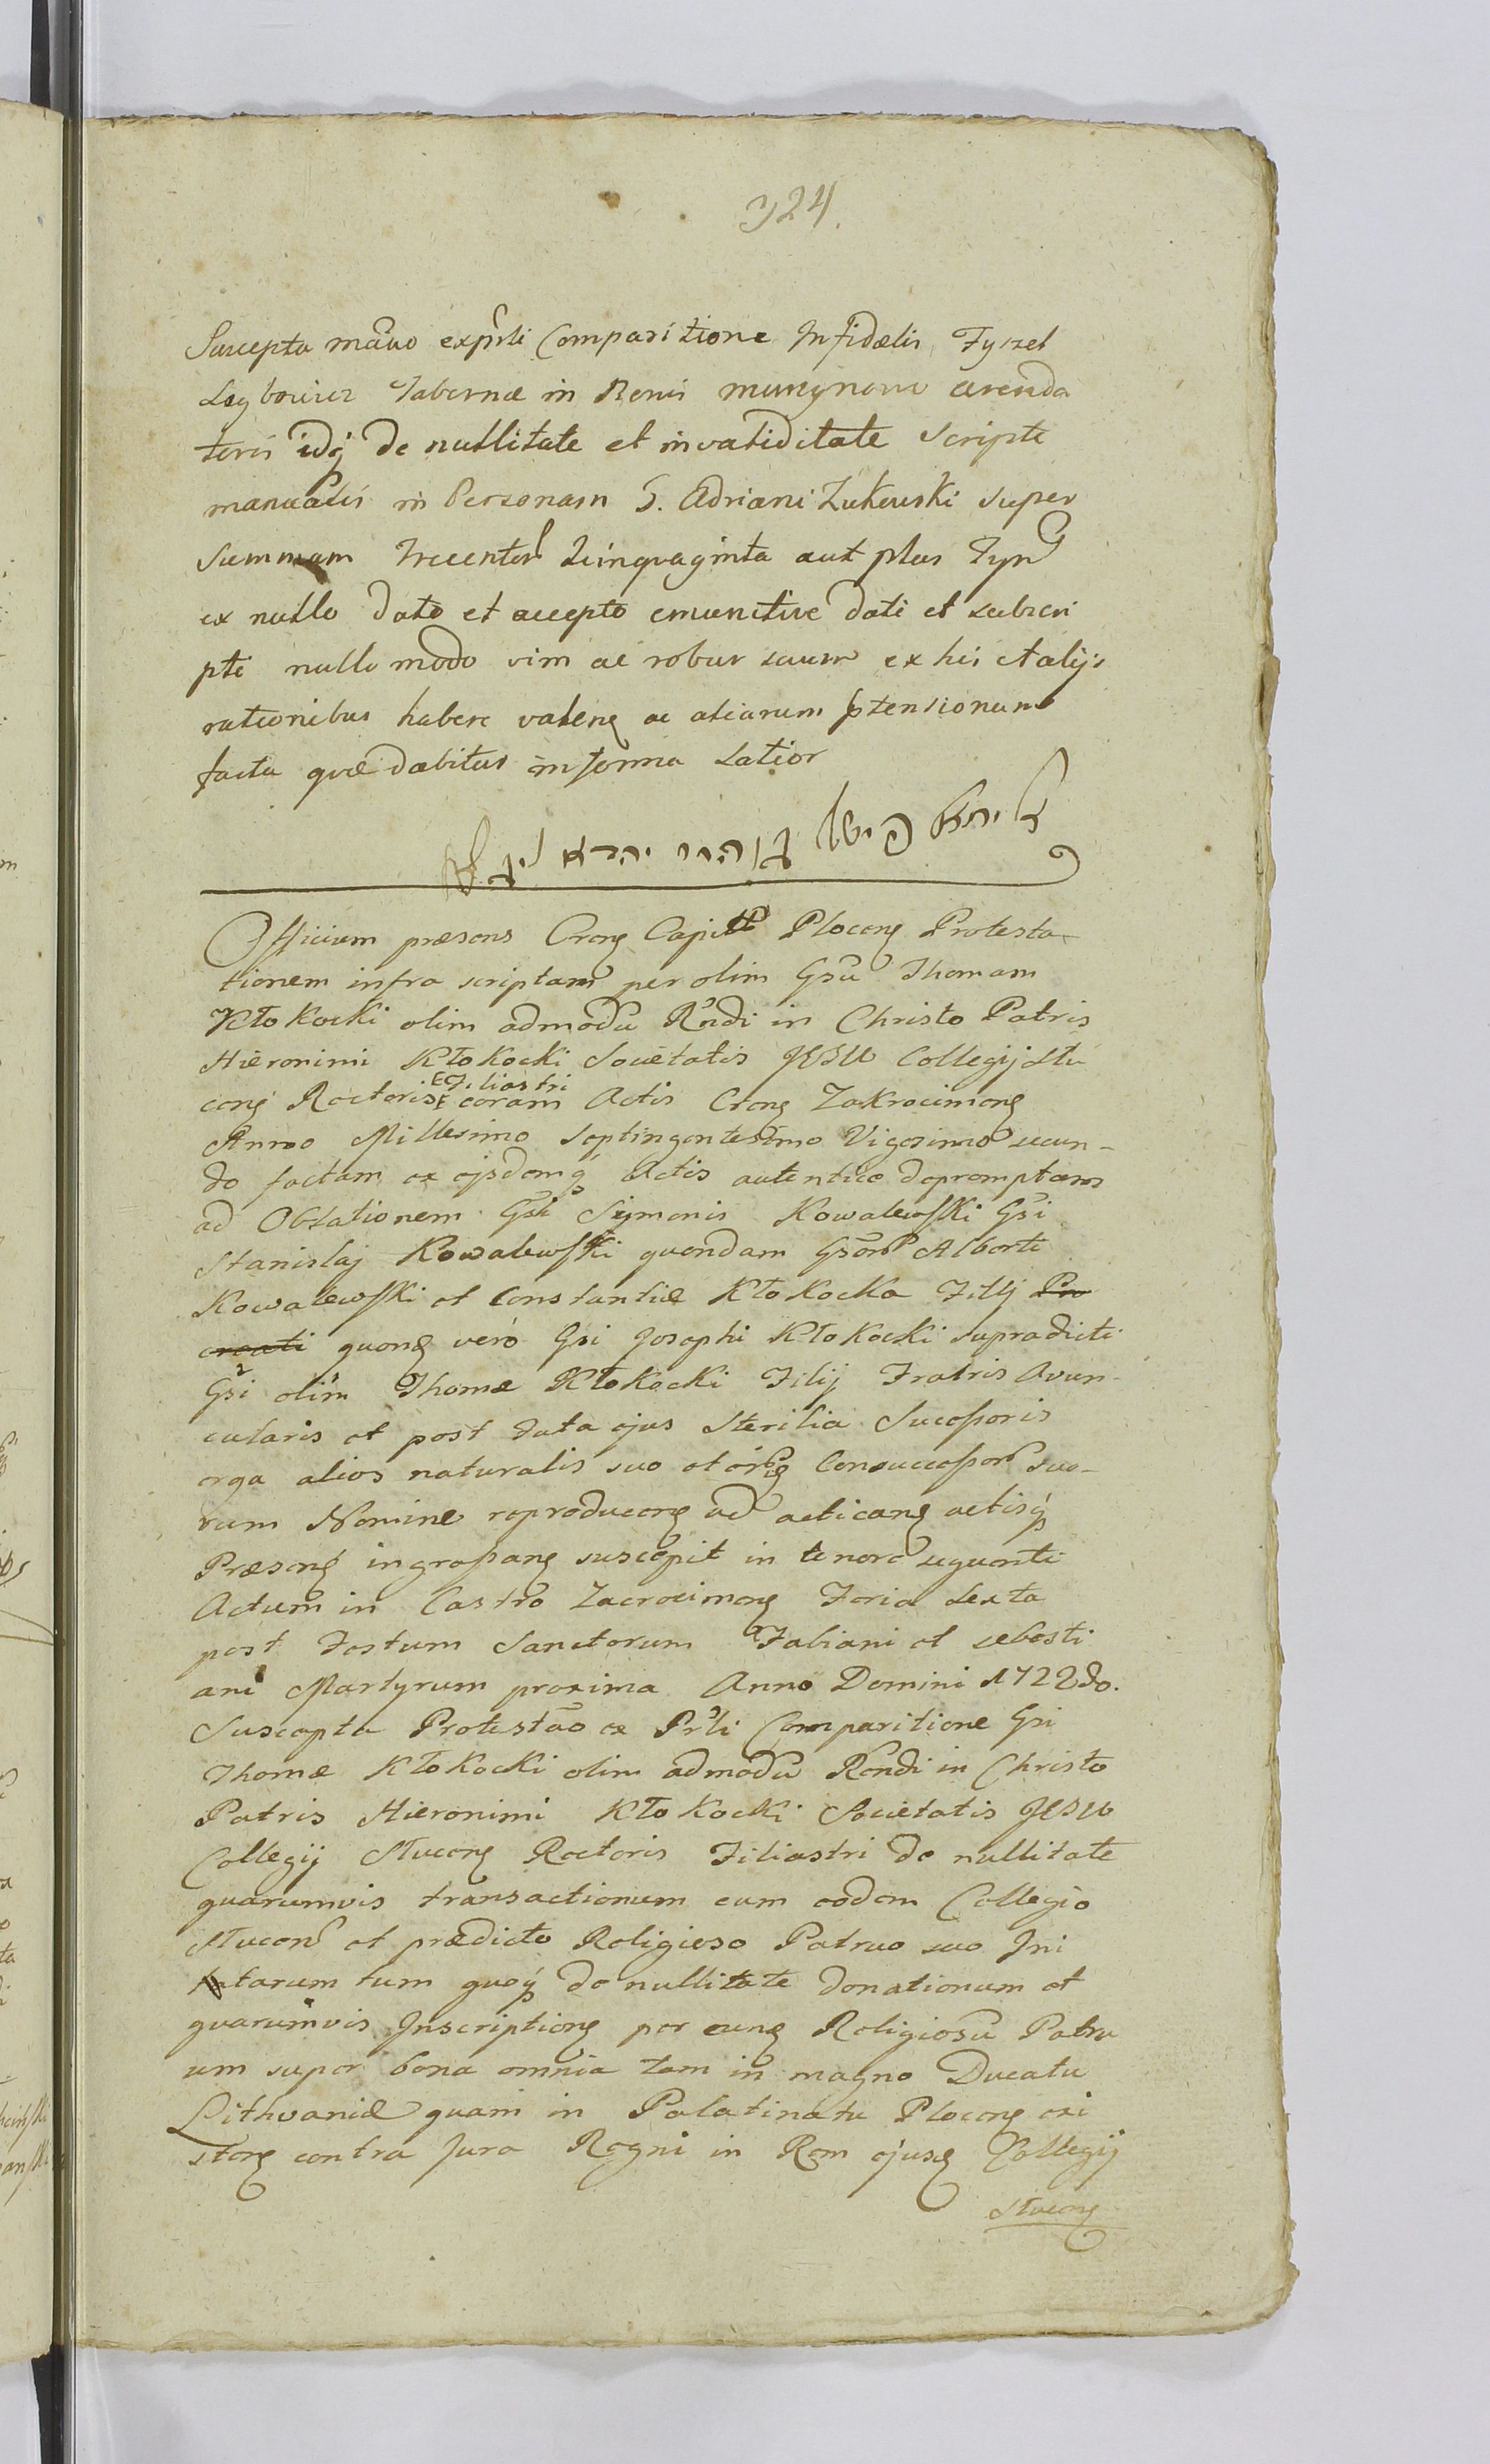 324.
Suscepta mãtio exprñti Comparitione Infidelis Fyszel
Leybowicz Tabernæ in Bonis arenda
toris idq́ de nullitate et invaliditate Scripti
manualis in Personam G. Adriani Zukowski super
Summam Trecentor Quinquaginta aut plus Tynf
ex nullo dato et accepto emunctive dati et subscri
pti nullo modo vim ac robur suum ex his et alijs
rationibus habere valenȩ ac aliarum ptensionum
facta quæ dabitur in forma Latior
פישל
Officium præsens Crenȩ Capitle Plocenȩ Protesta-
tionem infra scriptam per olim Gsũ Thomam
Kłokocki olim admodũ Rñdi in Christo Patris
Hieronimi Kłokocki Societatis JESU Collegij Slu
cenȩ Rectoris Filiastri coram Actis Crenȩ Zakrocimenȩ
Anno Millesimo Septingentesimo Vigesimo secun-
do factam ex ejsdemq́ Actis autentice depromptam
ad Oblationem Gsi Symonis Kowalewski Gsi
Stanislaj Kowalewski quondam Gsor Alberti
Kowalewski et Constantiæ Kłokocka Filij Pro
creati quonȩ vero Gsi Josephi Kłokocki supradicti
Gsi olim Thomæ Kłokocki Filij Fratris Avun-
cularis et post fata ejus Sterilia Sucessoris
erga alios naturalis suo et Consuccessor suo-
rum Nomine reproducenȩ ad acticanȩ actisq́
Præsenȩ ingrossanȩ suscepit in tenore sequenti
Actum in Castro Zacrocimenȩ Feria Sexta
post Festum Sanctorum Fabiani et Sebasti
ani Martyrum proxima Anno Domini 1722do.
Suscepta Protestão ex Prñti Comparitione Gsi
Thomæ Kłokocki olim admodũ Rendi in Christo
Patris Hieronimi Kłokocki Societatis JESU
Collegij Slucenȩ Rectoris Filiastri de nullitate
quarumvis transactionum cum eodem Collegio
Slucen et prædicto Religioso Patruo suo Ini
tarum tum quoq́ de nullitate donationum et
quarumvis Inscriptionȩ per eunȩ Religiosũ Patru
um super bona omnia tam in magno Ducatu
Lithvaniæ quam in Palatinatu Plocenȩ exi
stenȩ contra Jura Regni in Rem ejusȩ Collegij
Slucenȩ